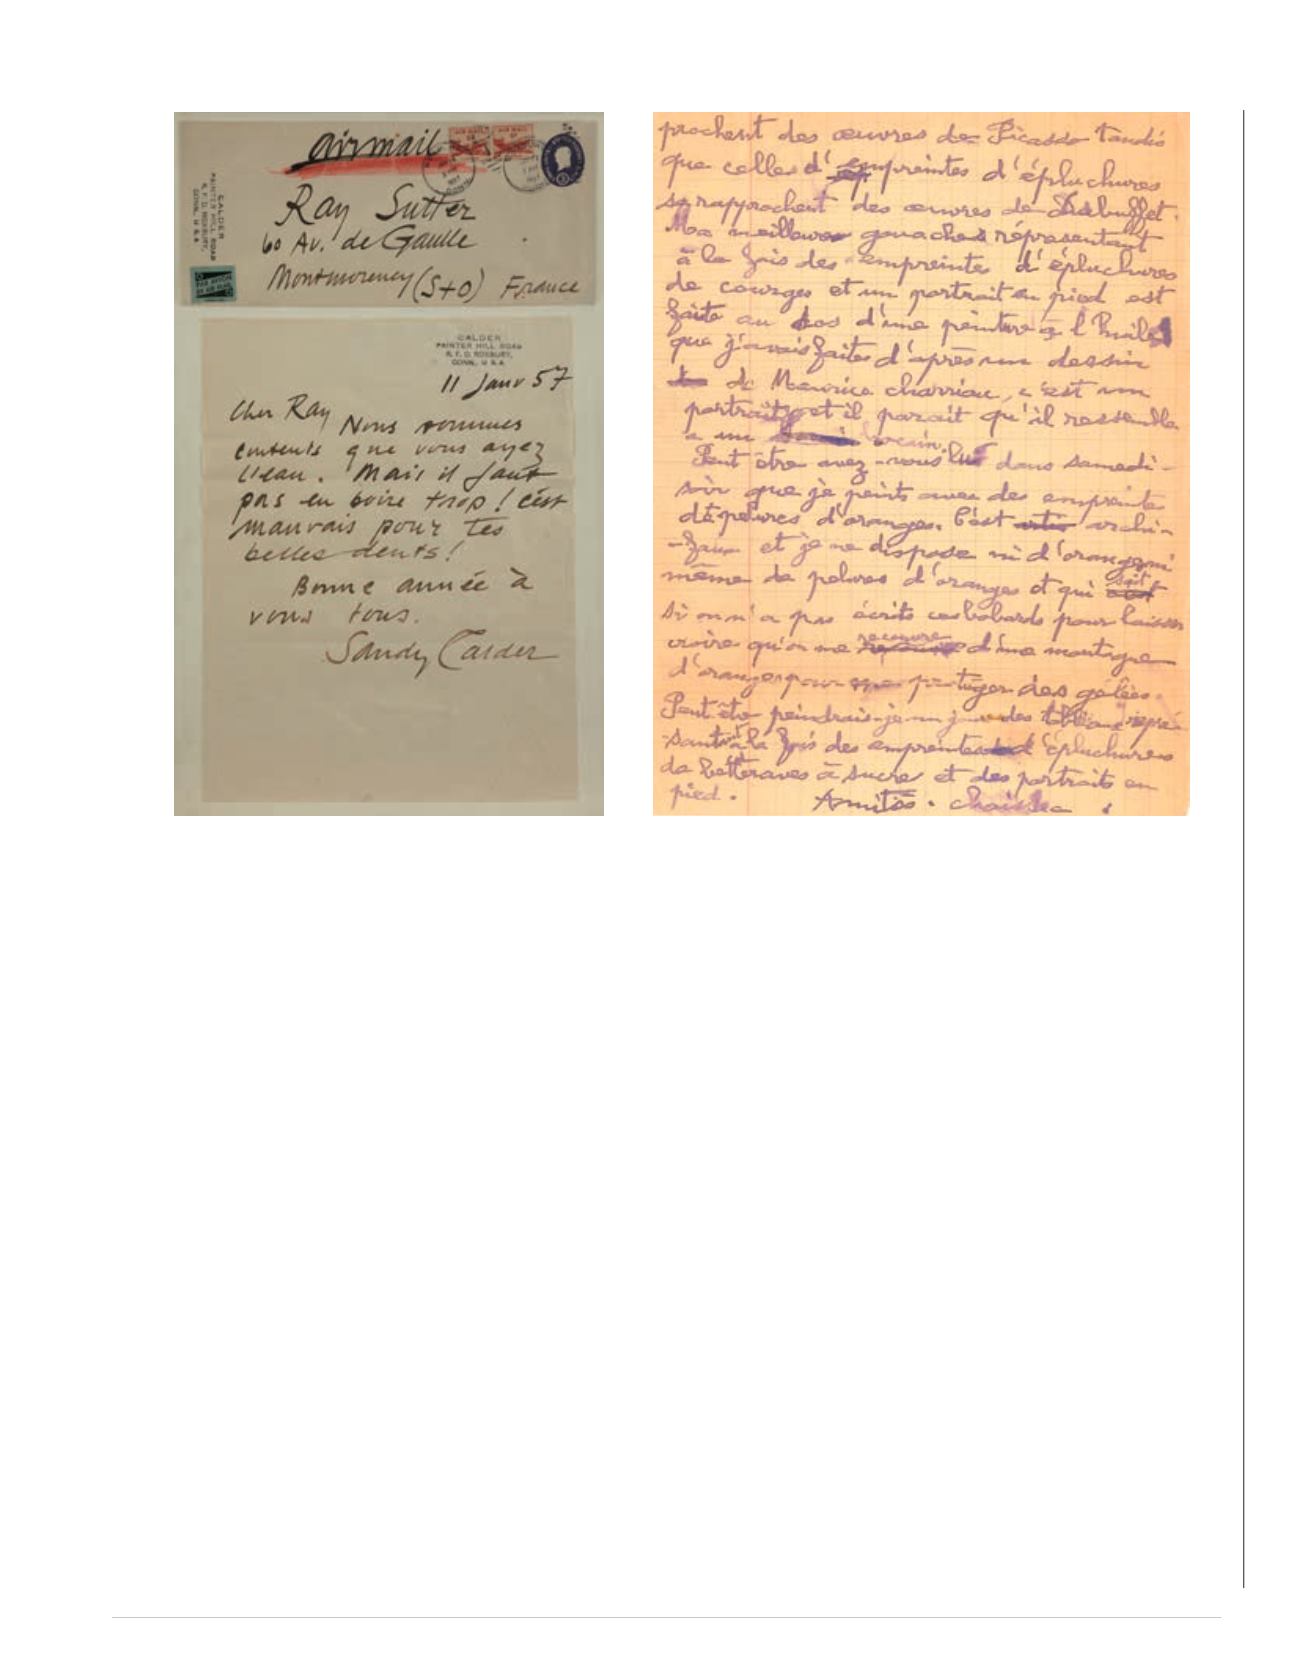 airmail
AIR MAIL
AIR MAIL
CALDER
PAINTER HILL ROAD
R. F. D. ROXBURY,
CONN., U S A
Ray Sutter
60 Av. de Gaulle
Montmorency (S+O) France
PAR AVION
BY AIR MAIL
CALDER
PAINTER HILL ROAD
R. F. D. ROXBURY,
CONN., U S A
11 Janv 57
Cher Ray
Nous sommes
contents que vous ayez
l'eau. Mais il faut
pas en boire trop! c'est
mauvais pour tes
belles dents!
Bonne année à
vous tous.
Sandy Calder
prochent des œuvres de Picasso tandis
que celles d'empreintes d'épluchures
se rapprochent des œuvres de Dubuffet.
Ma meilleure gouache représentant
à la fois des empreintes d'épluchures
de courges et un portrait en pied est
faite au dos d'une peinture à l'huile
que j'avais faites d'après un dessin
de Maurice charriau, c'est un
portrait et il parait qu'il ressemble
a un
Peut être avez-vous lu dans samedi-
soir que je peints avec des empreintes
de pelures d'oranges. C'est archi-
-faux et je ne dispose ni d'oranges ni
même de pelures d'oranges et qui sait
si on n'a pas écrits ces bobards pour laisser
croire qu'on me recouvre d'une montagne
d'oranges pour protéger des gelées.
Peut être peindrais-je un jour des tableaux repré-
sentant à la fois des empreintes d'épluchures
de betteraves à sucre et des portraits en
pied.
Amitiés. Chaissac